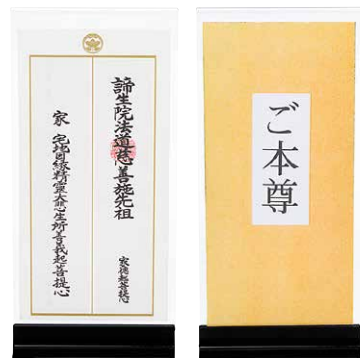 諦生院法道慈善施先祖
家徳起菩提心
家
宅地因縁精霊大慈生所善義起菩提心
ご本尊